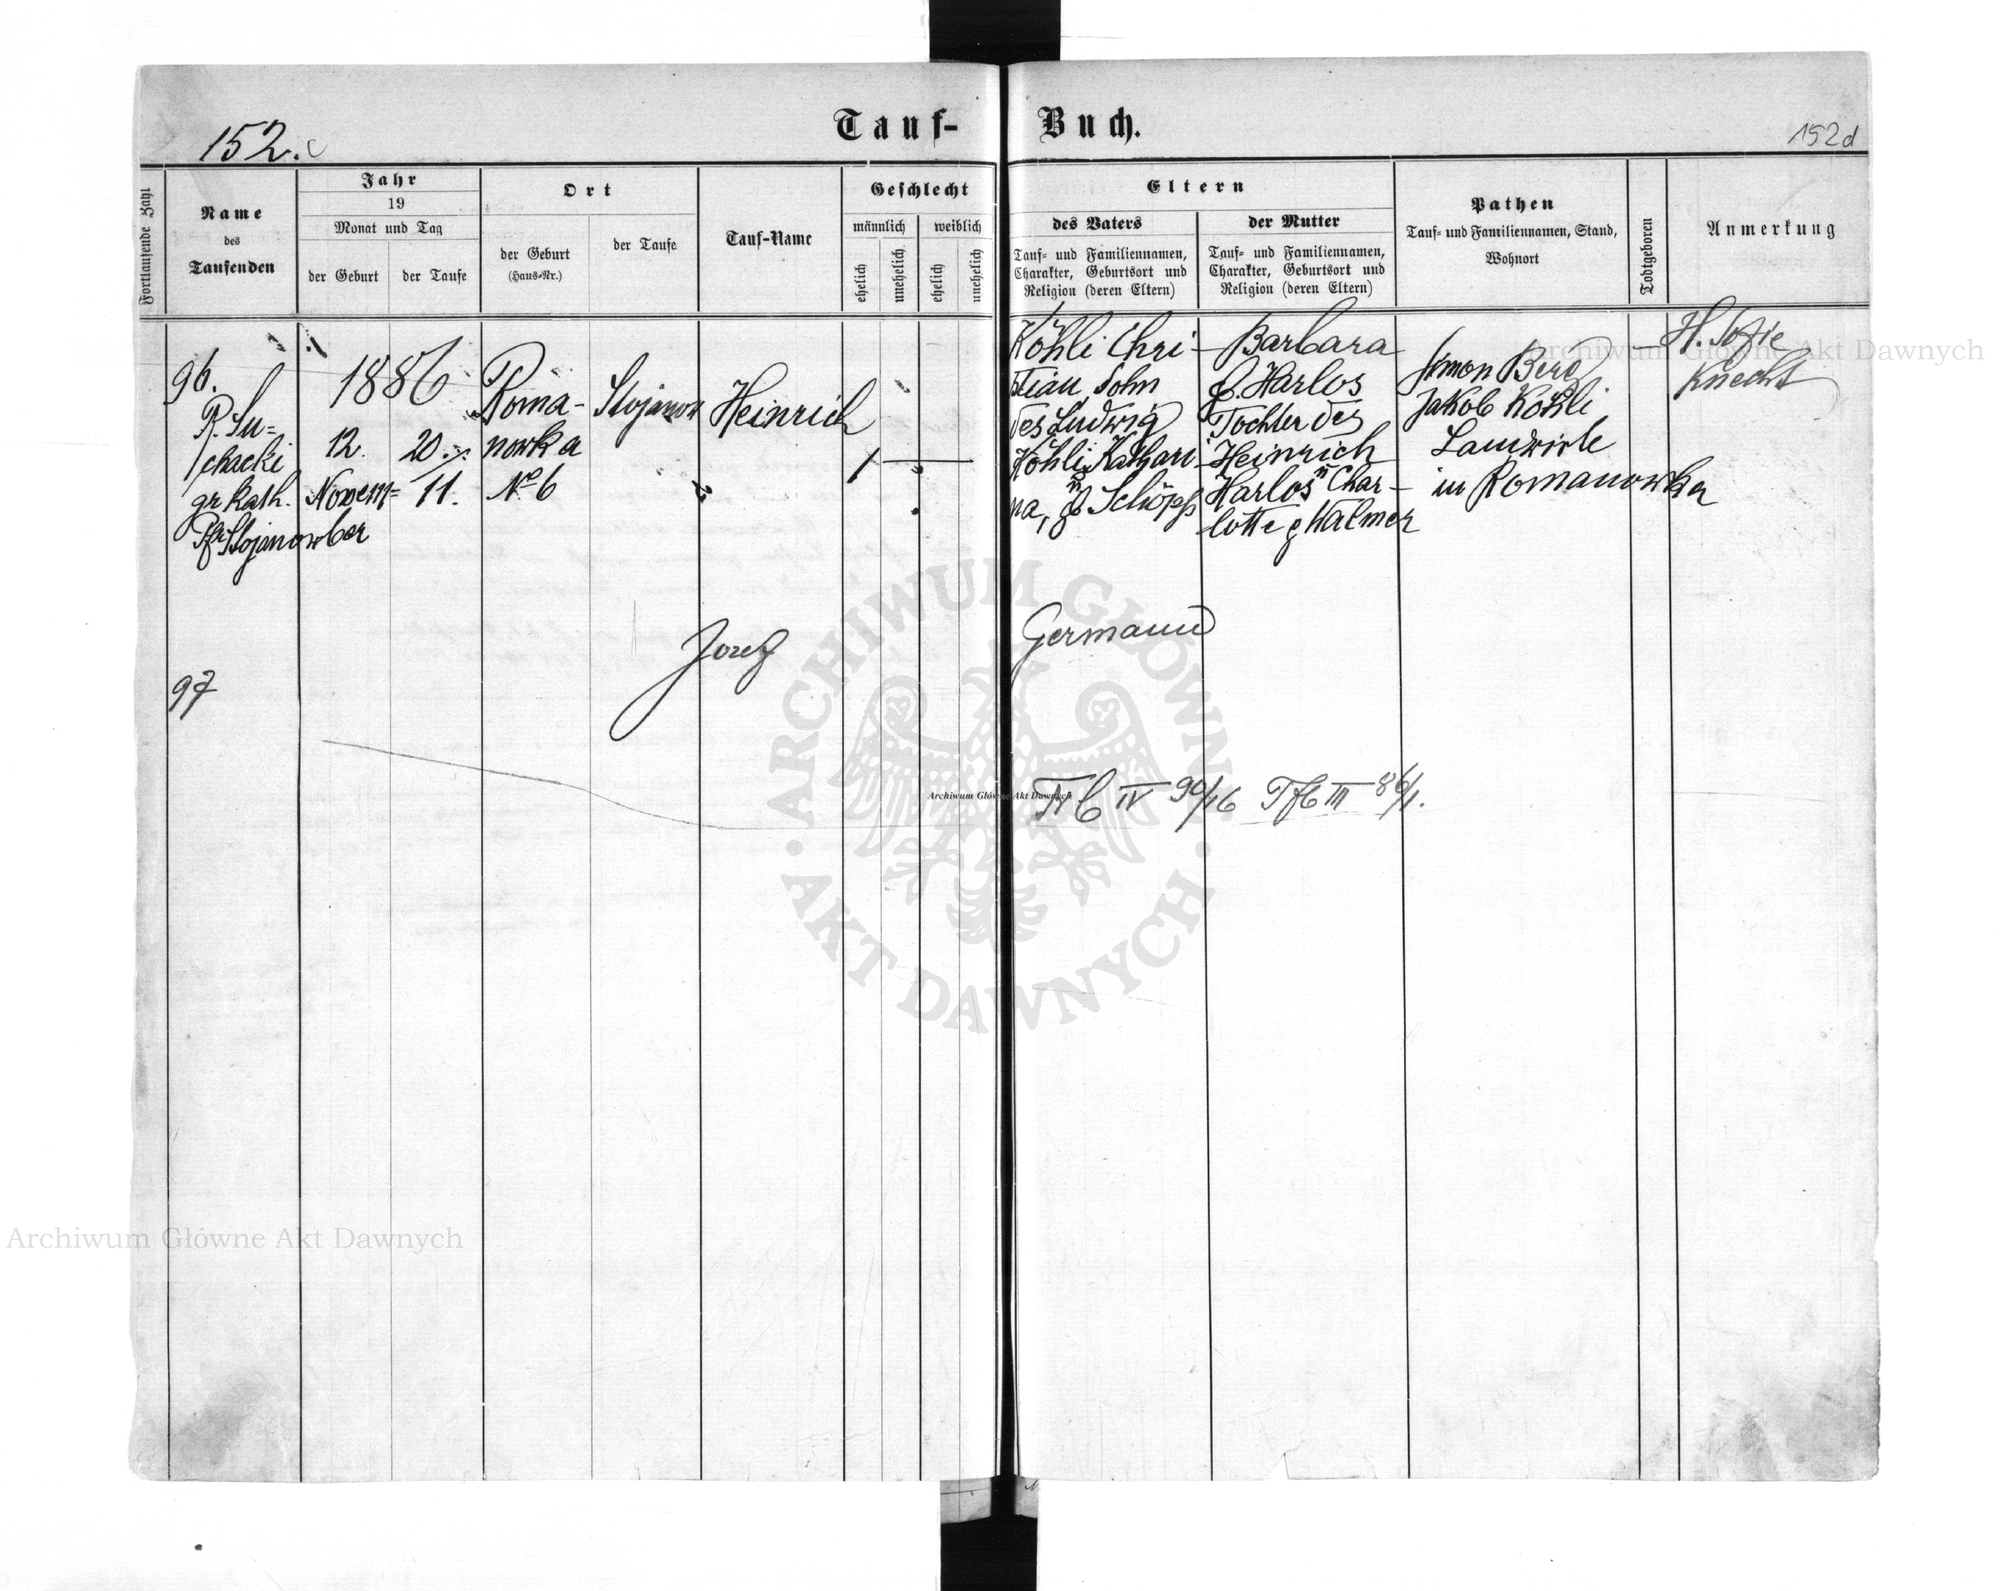 152.c
Tauf-Buch.
152d
Fortlaufende Zahl
Name
des
Taufenden
Jahr
19
Monat und Tag
der Geburt
der Taufe
Ort
der Geburt
(Haus-Nr.)
der Taufe
Tauf-Name
Geschlecht
männlich
weiblich
ehelich
unehelich
ehelich
unehelich
Eltern
des Vaters
Tauf- und Familiennamen,
Charakter, Geburtsort und
Religion (deren Eltern)
der Mutter
Tauf- und Familiennamen,
Charakter, Geburtsort und
Religion (deren Eltern)
Pathen
Tauf- und Familiennamen, Stand,
Wohnort
Todtgeboren
Anmerkung
96.
R. Su-
chacki
gr. kath.
Pfr Stojanow
1886
12.
Novem-
ber
20./
11.
Roma-
nowka
No 6
Stojanow
Heinrich
1
Köhli Chri-
stian, Sohn
des Ludwig
Köhli, Kathari-
na, g. Schöpp
Barbara
g. Harlos
Tochter des
Heinrich
Harlos n Char-
lotte g Walmer
Simon Berg
Jakob Köhli
Landwirte
in Romanowka
H. Sofie
Knecht
97
Josef
Germann
Trb IV 90/16 Tfb III 86/1.
Archiwum Główne Akt Dawnych
ARCHIWUM GŁÓWNE
AKT DAWNYCH
Archiwum Główne Akt Dawnych
Archiwum Główne Akt Dawnych